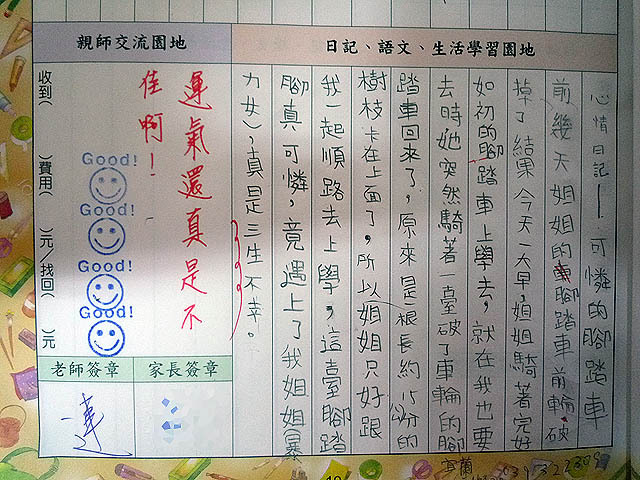 日記、語文、生活學習園地
心情日記—可憐的腳踏車
前幾天姐姐的腳踏車前輪破
掉了，結果今天一大早，姐姐騎著完好
如初的腳踏車上學去，就在我也要
去時她突然騎著一臺破了車輪的腳
踏車回來了，原來是根長約15公分的
樹枝卡在上面了，所以姐姐只好跟
我一起順路去上學，這臺腳踏
腳真可憐，竟遇上了我姐姐(暴
力女)，真是三生不幸。
親師交流園地
運氣還真是不
佳啊！
Good!
Good!
Good!
Good!
收到( )費用( )元/找回( )元
老師簽章
家長簽章
蓮